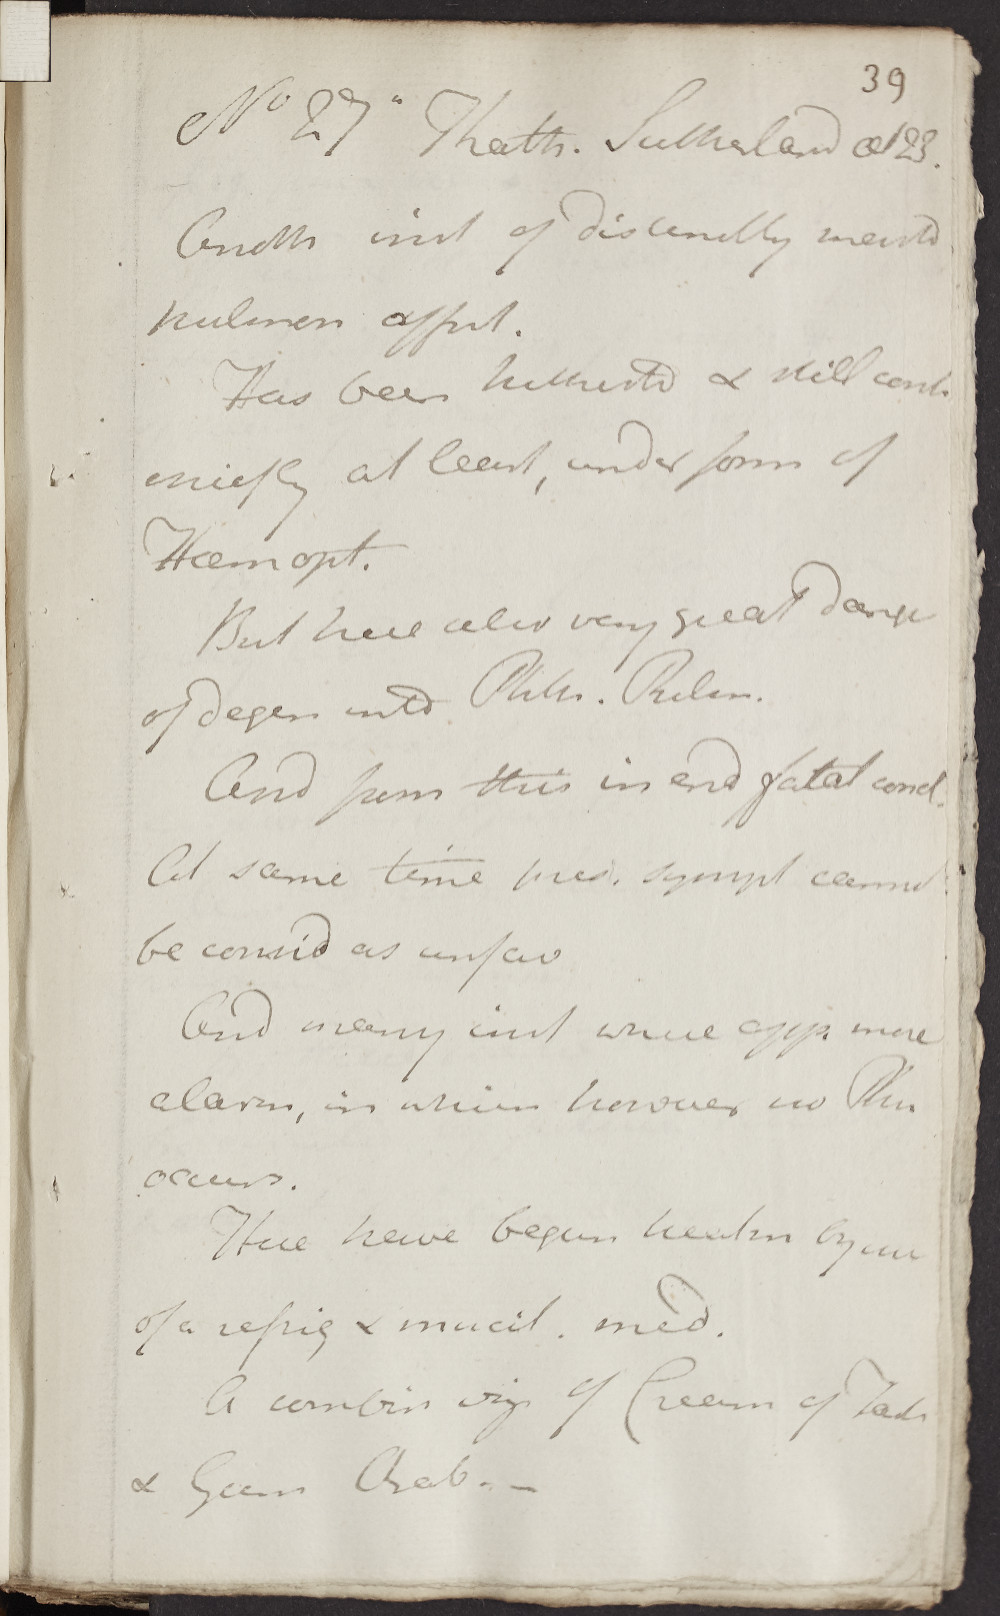 39
No 27" Kath. Sutherland aet 23.
Anoth inst of discendly
pulmon affect.
Has been hitherto & still cont
chiefly at least, under form of
Haemopt.
But here also very great dange
of degen into Phth. Pulm.
And from this in end fatal concl.
At same time pres. sympt cannot
be consid as unfav
And many inst where app. more
alarm, in which however no Phth
occurs.
Here have begun by use
of a refrig & mucil. med.
A combin viz of Cream of Tart
& Gum Arab. –